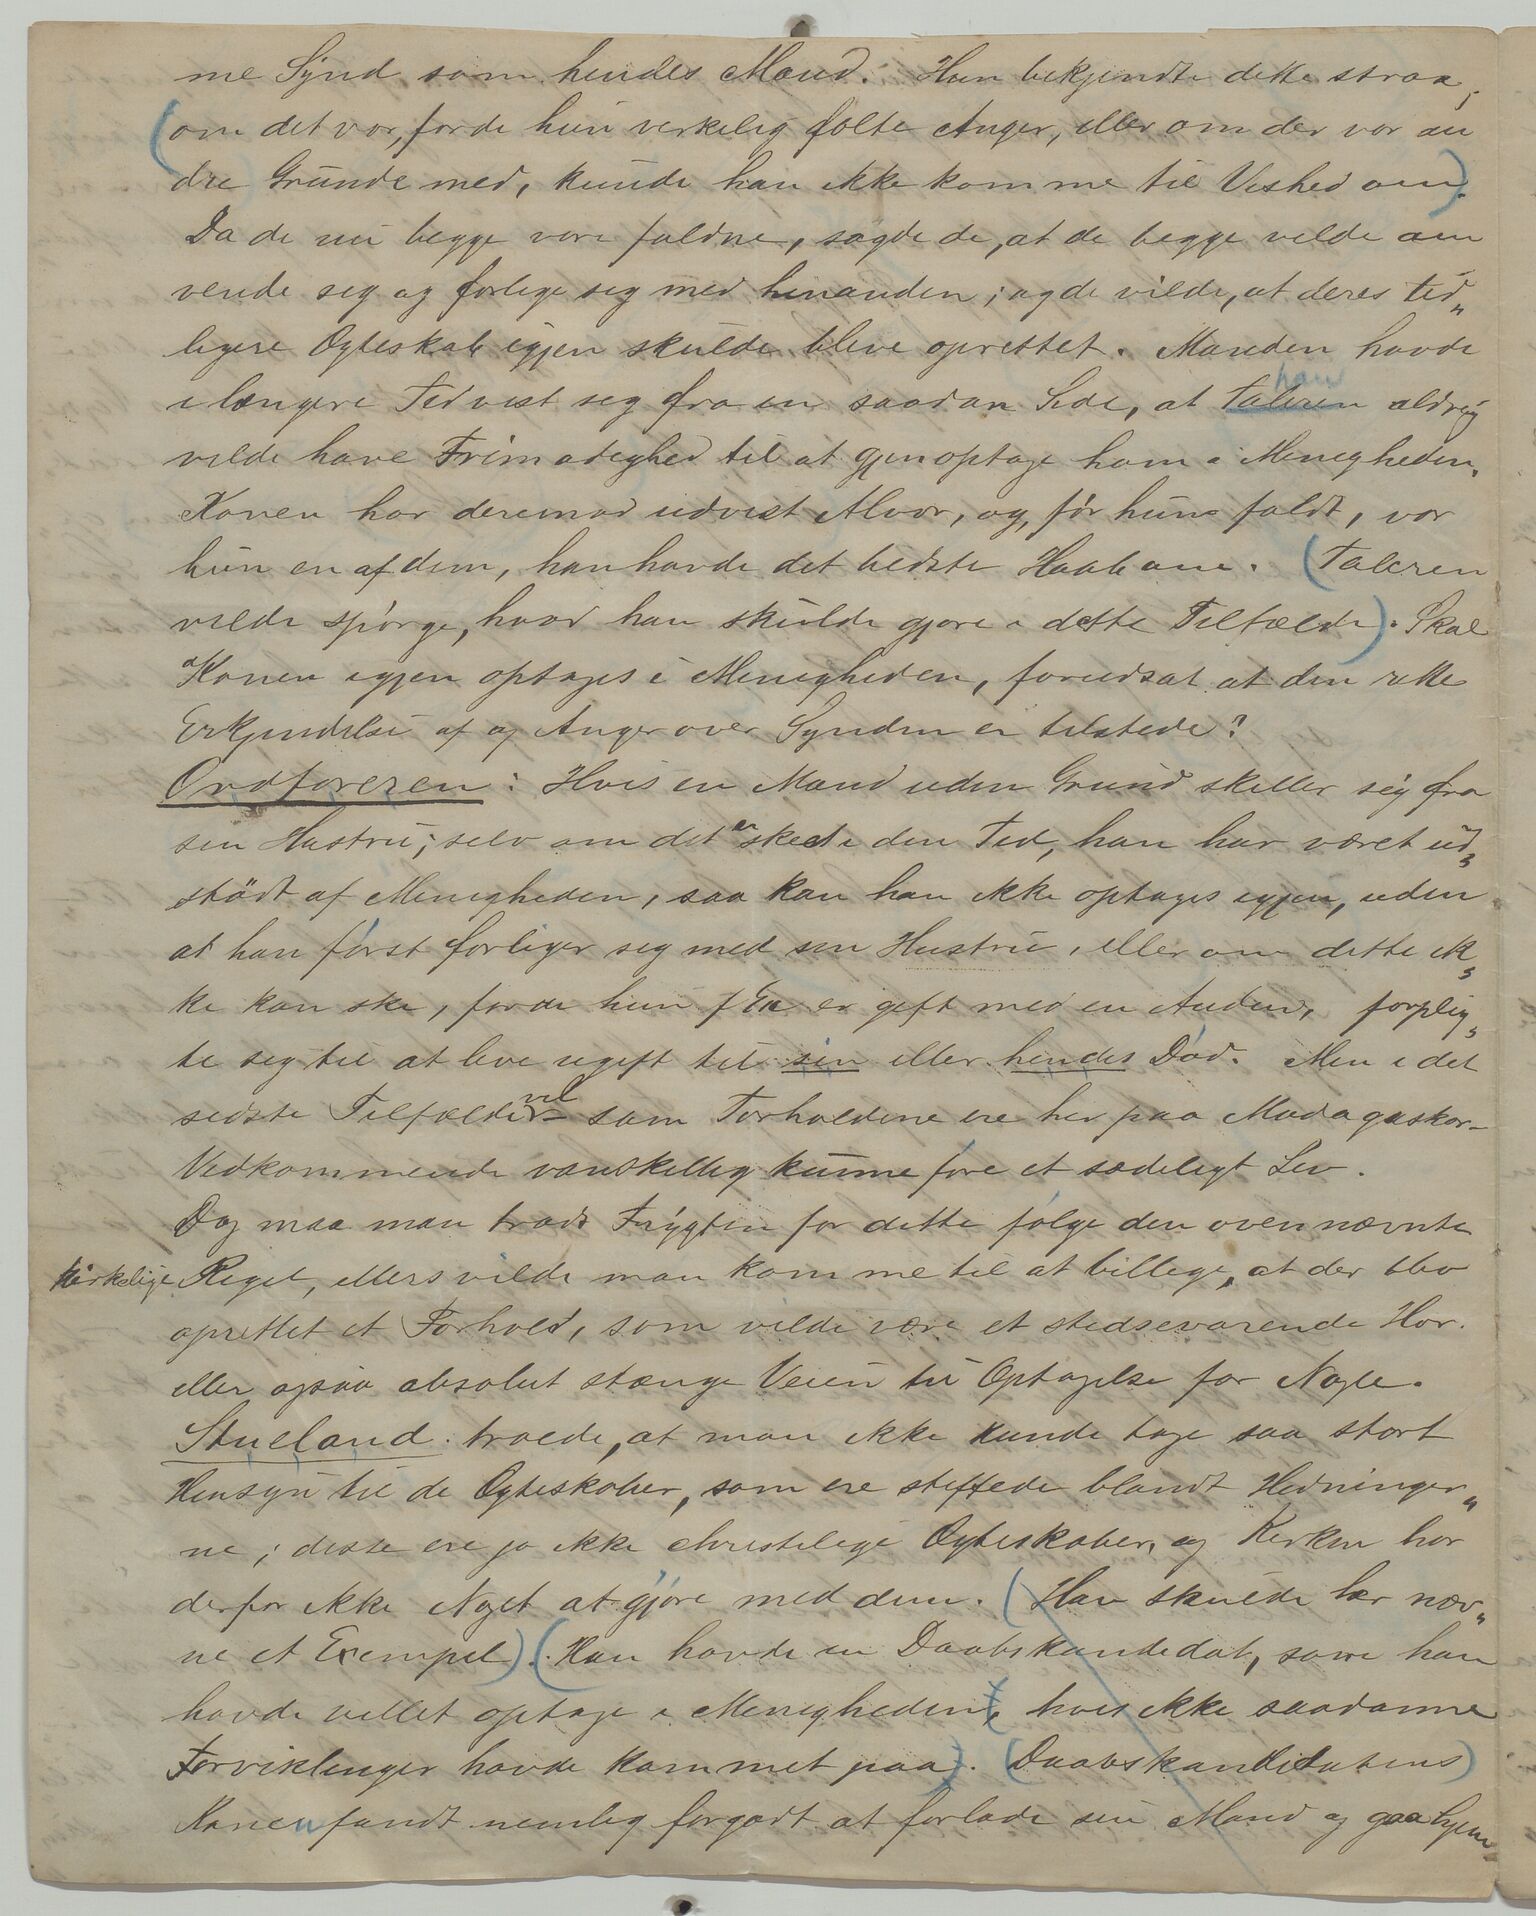 me Synd som hendes Mand. Hun bekjendte dette strax;
(om det var, fordi hun verkelig følte Anger, eller om der var an
dre Grunde med, kunde han ikke komme til Vished om).
Da de nu begge vare faldne, sagde de, at de begge vilde om
vende sig og forlige sig med hinanden; og de vilde, at deres tid„
ligere Ægteskab igjen skulde blive oprettet. Manden havde
i længere Tid vist sig fra en saadan Side, at Taleren han aldrig
vilde have Frimodighed til at gjenoptage ham i Menigheden.
Konen har derimod udvist Alvor, og, før hun faldt, var
hun en af dem, han havde det bedste Haab om. (Taleren
vilde spørge, hvad han skulde gjøre i dette Tilfælde). Skal
Konen igjen optages i Menigheden, forudsat at den rette
Erkjendelse af og Anger over Synden er tilstede?
Ordføreren: Hvis en Mand uden Grund skiller sig fra
sin Hustru; selv om det er skedt i den Tid, han har været ud„
stødt af Menigheden, saa kan han ikke optages igjen, uden
at han først forliger sig med sin Hustru, eller om dette ik„
ke kan ske, fordi hun f Ex er gift med en Anden, forplig„
te sig til at leve ugift til sin eller hendes Død. Men i det
sidste Tilfælde vil – som Forholdene ere her paa Madagaskar –
Vedkommende vanskelig kunne føre et sædeligt Liv.
Dog maa man trods Frygten for dette følge den ovennævnte
kirkelige Regel, ellers vilde man komme til at billige, at der blev
oprettet et Forhold, som vilde være et stedsevarende Hor.
eller ogsaa absolut stænge Veien til Optagelse for Nogle.
Stueland troede, at man ikke kunde tage saa stort
Hensyn til de Ægteskaber, som ere stiftede blandt Hedninger„
ne; disse ere jo ikke christelige Ægteskaber, og Kirken har
derfor ikke Noget at gjøre med dem. (Han skulde her næv„
ne et Exempel). (Han havde en Daabskandidat, som han
havde villet optage i Menigheden, hvis ikke saadanne
Forviklinger havde kommet paa). (Daabskandidatens)
Konen fandt nemlig forgodt at forlade sin Mand og gaa hjem